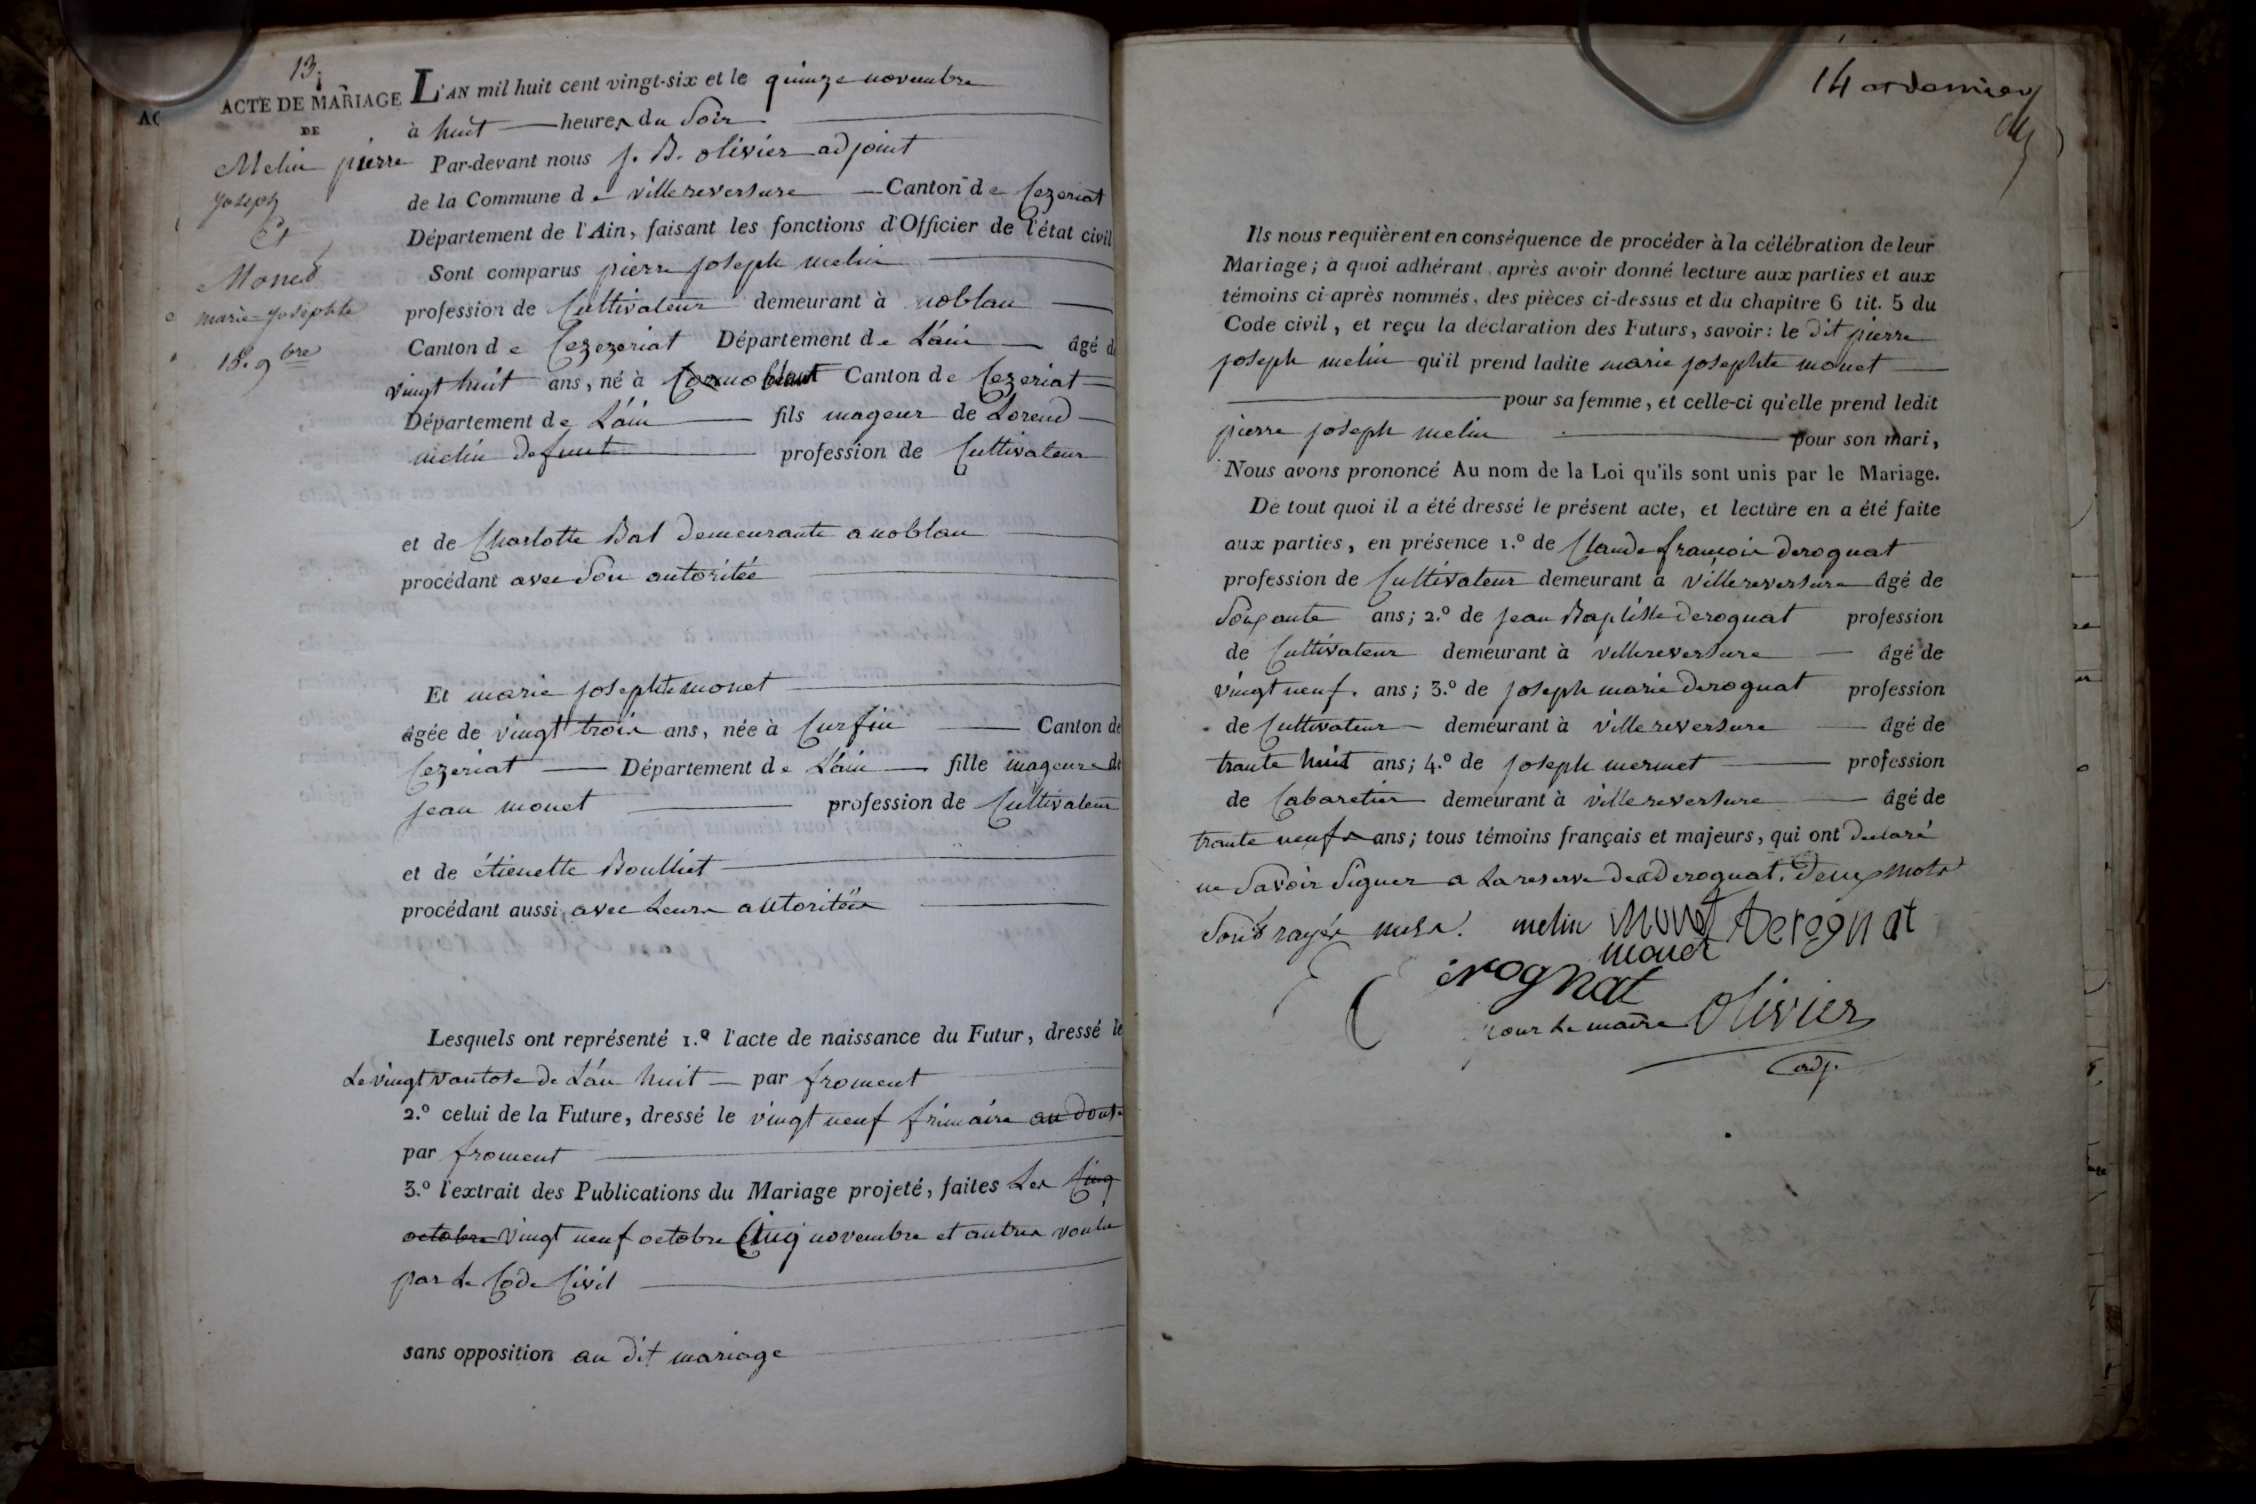 13.
ACTE DE MARIAGE
DE
Melin pierre
joseph
Et
Moned
marie josephte
15. 9bre
L'AN mil huit cent vingt-six et le quinze novembre
à huit heures du Soir
Par-devant nous J. B. olivier adjoint
de la Commune de villereversure Canton de Cezeriat
Département de l'Ain, faisant les fonctions d'Officier de l'état civil
Sont comparus pierre joseph melin
profession de Cultivateur demeurant à noblan
Canton de Cezezeriat Département de L'ain âgé de
vingt huit ans, né à Canton de Cezeriat
Département de L'ain fils mageur de Lorend
melin defunt profession de Cultivateur
et de Charlotte Bal demeurante a noblan
procédant avec Son autoritée
Et marie josephte monet
âgée de vingt trois ans, née à Curfin Canton de
Cezeriat Département de L'ain fille mageure de
jean monet profession de Cultivateur
et de étienette Boulliet
procédant aussi avec Leurs autoritées
Lesquels ont représenté 1.º l'acte de naissance du Futur, dressé le
Le vingt vantose de L'an huit par froment
2.º celui de la Future, dressé le vingt neuf frimaire an douse
par froment
3.º l'extrait des Publications du Mariage projeté, faites Les Cinq
octobre vingt neuf octobre Cinq novembre et autres voulu
par Le Code Civil
sans opposition au dit mariage
14 et dernier
Ils nous requièrent en conséquence de procéder à la célébration de leur
Mariage; à quoi adhérant, après avoir donné lecture aux parties et aux
témoins ci-après nommés, des pièces ci-dessus et du chapitre 6 tit. 5 du
Code civil, et reçu la déclaration des Futurs, savoir: le dit pierre
joseph melin qu'il prend ladite marie josephte monet
pour sa femme, et celle-ci qu'elle prend ledit
pierre joseph melin pour son mari,
Nous avons prononcé Au nom de la Loi qu'ils sont unis par le Mariage.
De tout quoi il a été dressé le présent acte, et lecture en a été faite
aux parties, en présence 1.º de Claude françois derognat
profession de Cultivateur demeurant à villereversure âgé de
Soixante ans; 2.º de jean Baptiste derognat profession
de Cultivateur demeurant à villereversure âgé de
vingt neuf. ans; 3.º de joseph marie derognat profession
de Cultivateur demeurant à villereversure âgé de
trante huit ans; 4.º de joseph mermet profession
de Cabaretier demeurant à villereversure âgé de
trante neufs ans; tous témoins français et majeurs, qui ont declaré
ne Savoir Signer a La reserve des derognat. Deux mots
Sont rayés nuls. melin monet derognat
monet
erognat
pour Le maire Olivier
adj.